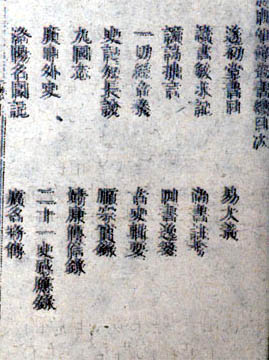 叢書總目次
遂初堂書目 易大義
讀書敏求記 尚書註考
讀詩拙言 四書逸箋
一切經音義 古史輯要
史記短長說 順宗實錄
九國志 靖康傳信錄
外史 二十一史感應錄
洛陽名園記 廣名將傳